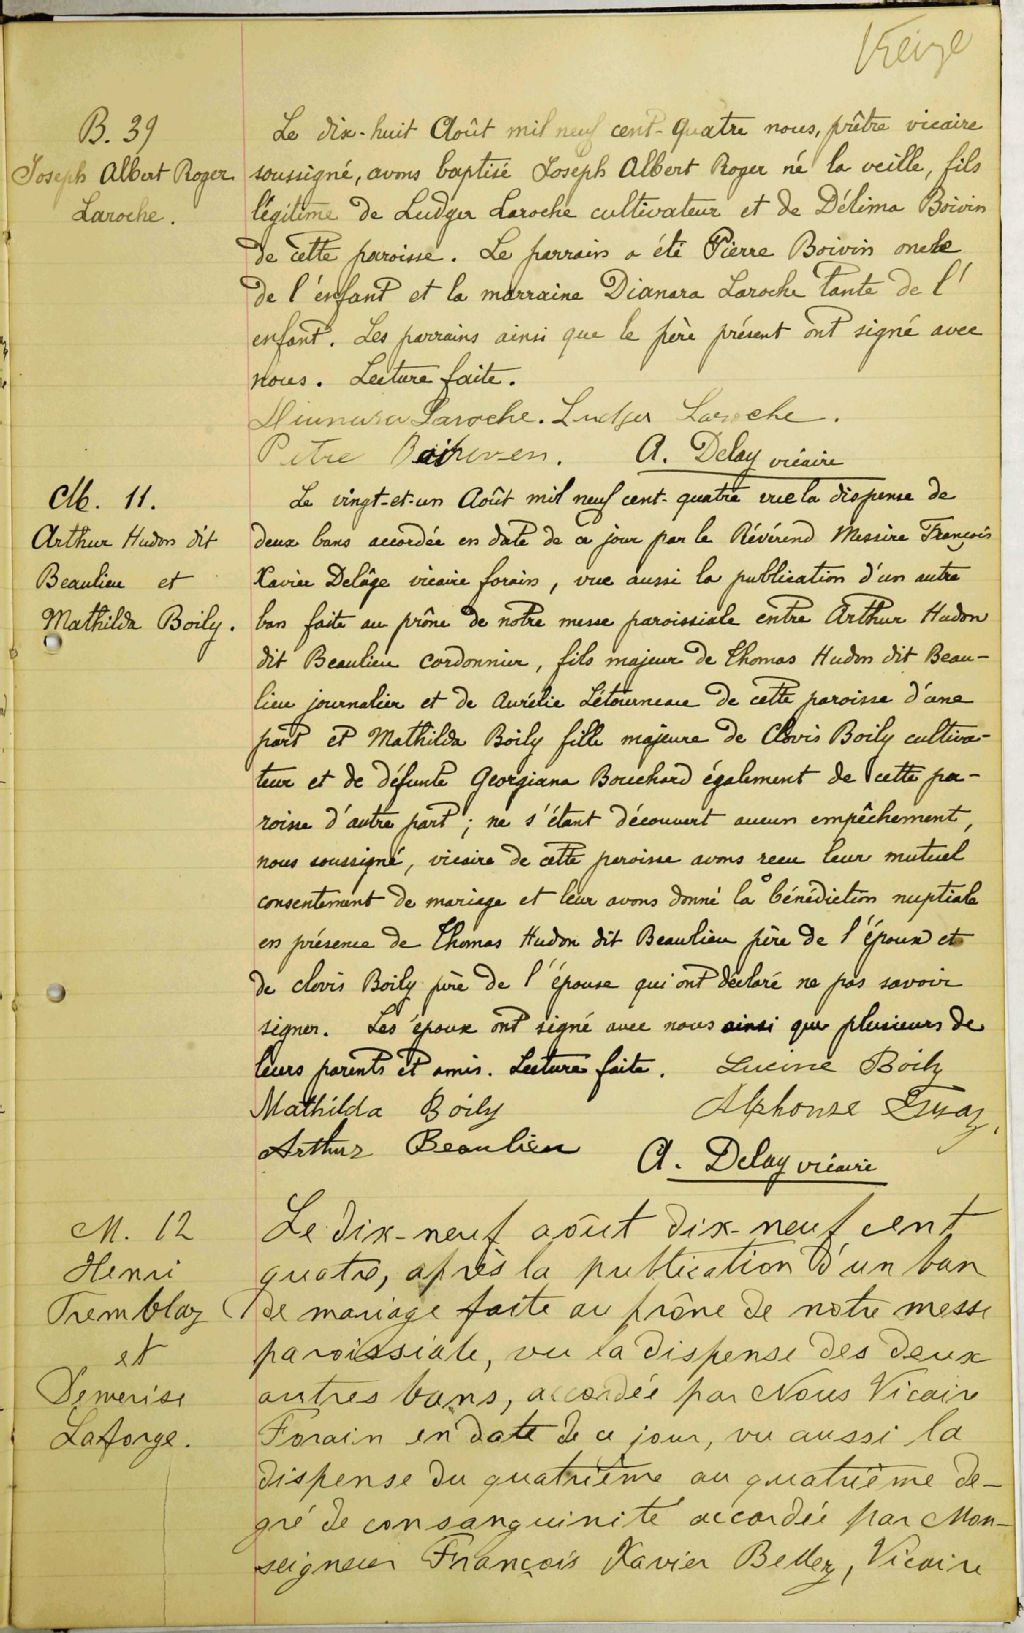 Treize
B. 39
Joseph Albert Roger
Laroche.
Le dix-huit Août mil neuf cent-quatre nous, prêtre vicaire
soussigné, avons baptisé Joseph Albert Roger né la veille, fils
légitime de Ludger Laroche cultivateur et de Délima Boivin
de cette paroisse. Le parrain a été Pierre Boivin oncle
de l'enfant et la marraine Dianara Laroche tante de l'
enfant. Les parrains ainsi que le père présent ont signé avec
nous. Lecture faite.
Laroche. Ludger Laroche.
A. Delay vicaire
M. 11.
Arthur Hudon dit
Beaulieu et
Mathilda Boily.
Le vingt-et-un Août mil neuf cent-quatre vue la dispense de
deux bans accordée en date de ce jour par le Révérend Messire François
Xavier Delâge vicaire forain, vue aussi la publication d'un autre
ban faite au prône de notre messe paroissiale entre Arthur Hudon
dit Beaulieu cordonnier, fils majeur de Thomas Hudon dit Beau-
lieu journalier et de Aurélie Létourneau de cette paroisse d'une
part et Mathilda Boily fille majeure de Clovis Boily cultiva-
teur et de défunte Georgiana Bouchard également de cette pa-
roisse d'autre part; ne s'étant découvert aucun empêchement,
nous soussigné, vicaire de cette paroisse avons reçu leur mutuel
consentement de mariage et leur avons donné la bénédiction nuptiale
en présence de Thomas Hudon dit Beaulieu père de l'époux et
de Clovis Boily père de l'épouse qui ont déclaré ne pas savoir
signer. Les époux ont signé avec nous ainsi que plusieurs de
leurs parents et amis. Lecture faite. Lucine Boily
Mathilda Boily Alphonse
Arthur Beaulieu A. Delay vicaire
M. 12
Henri
Tremblay
et
Démerise
Laforge.
Le dix-neuf août dix-neuf cent
quatre, après la publication d'un ban
de mariage faite au prône de notre messe
paroissiale, vu la dispense des deux
autres bans, accordée par Nous Vicaire
Forain en date de ce jour, vu aussi la
dispense du quatrième au quatrième de-
gré de consanguinité accordée par Mon-
seigneur François Xavier Belley, Vicaire